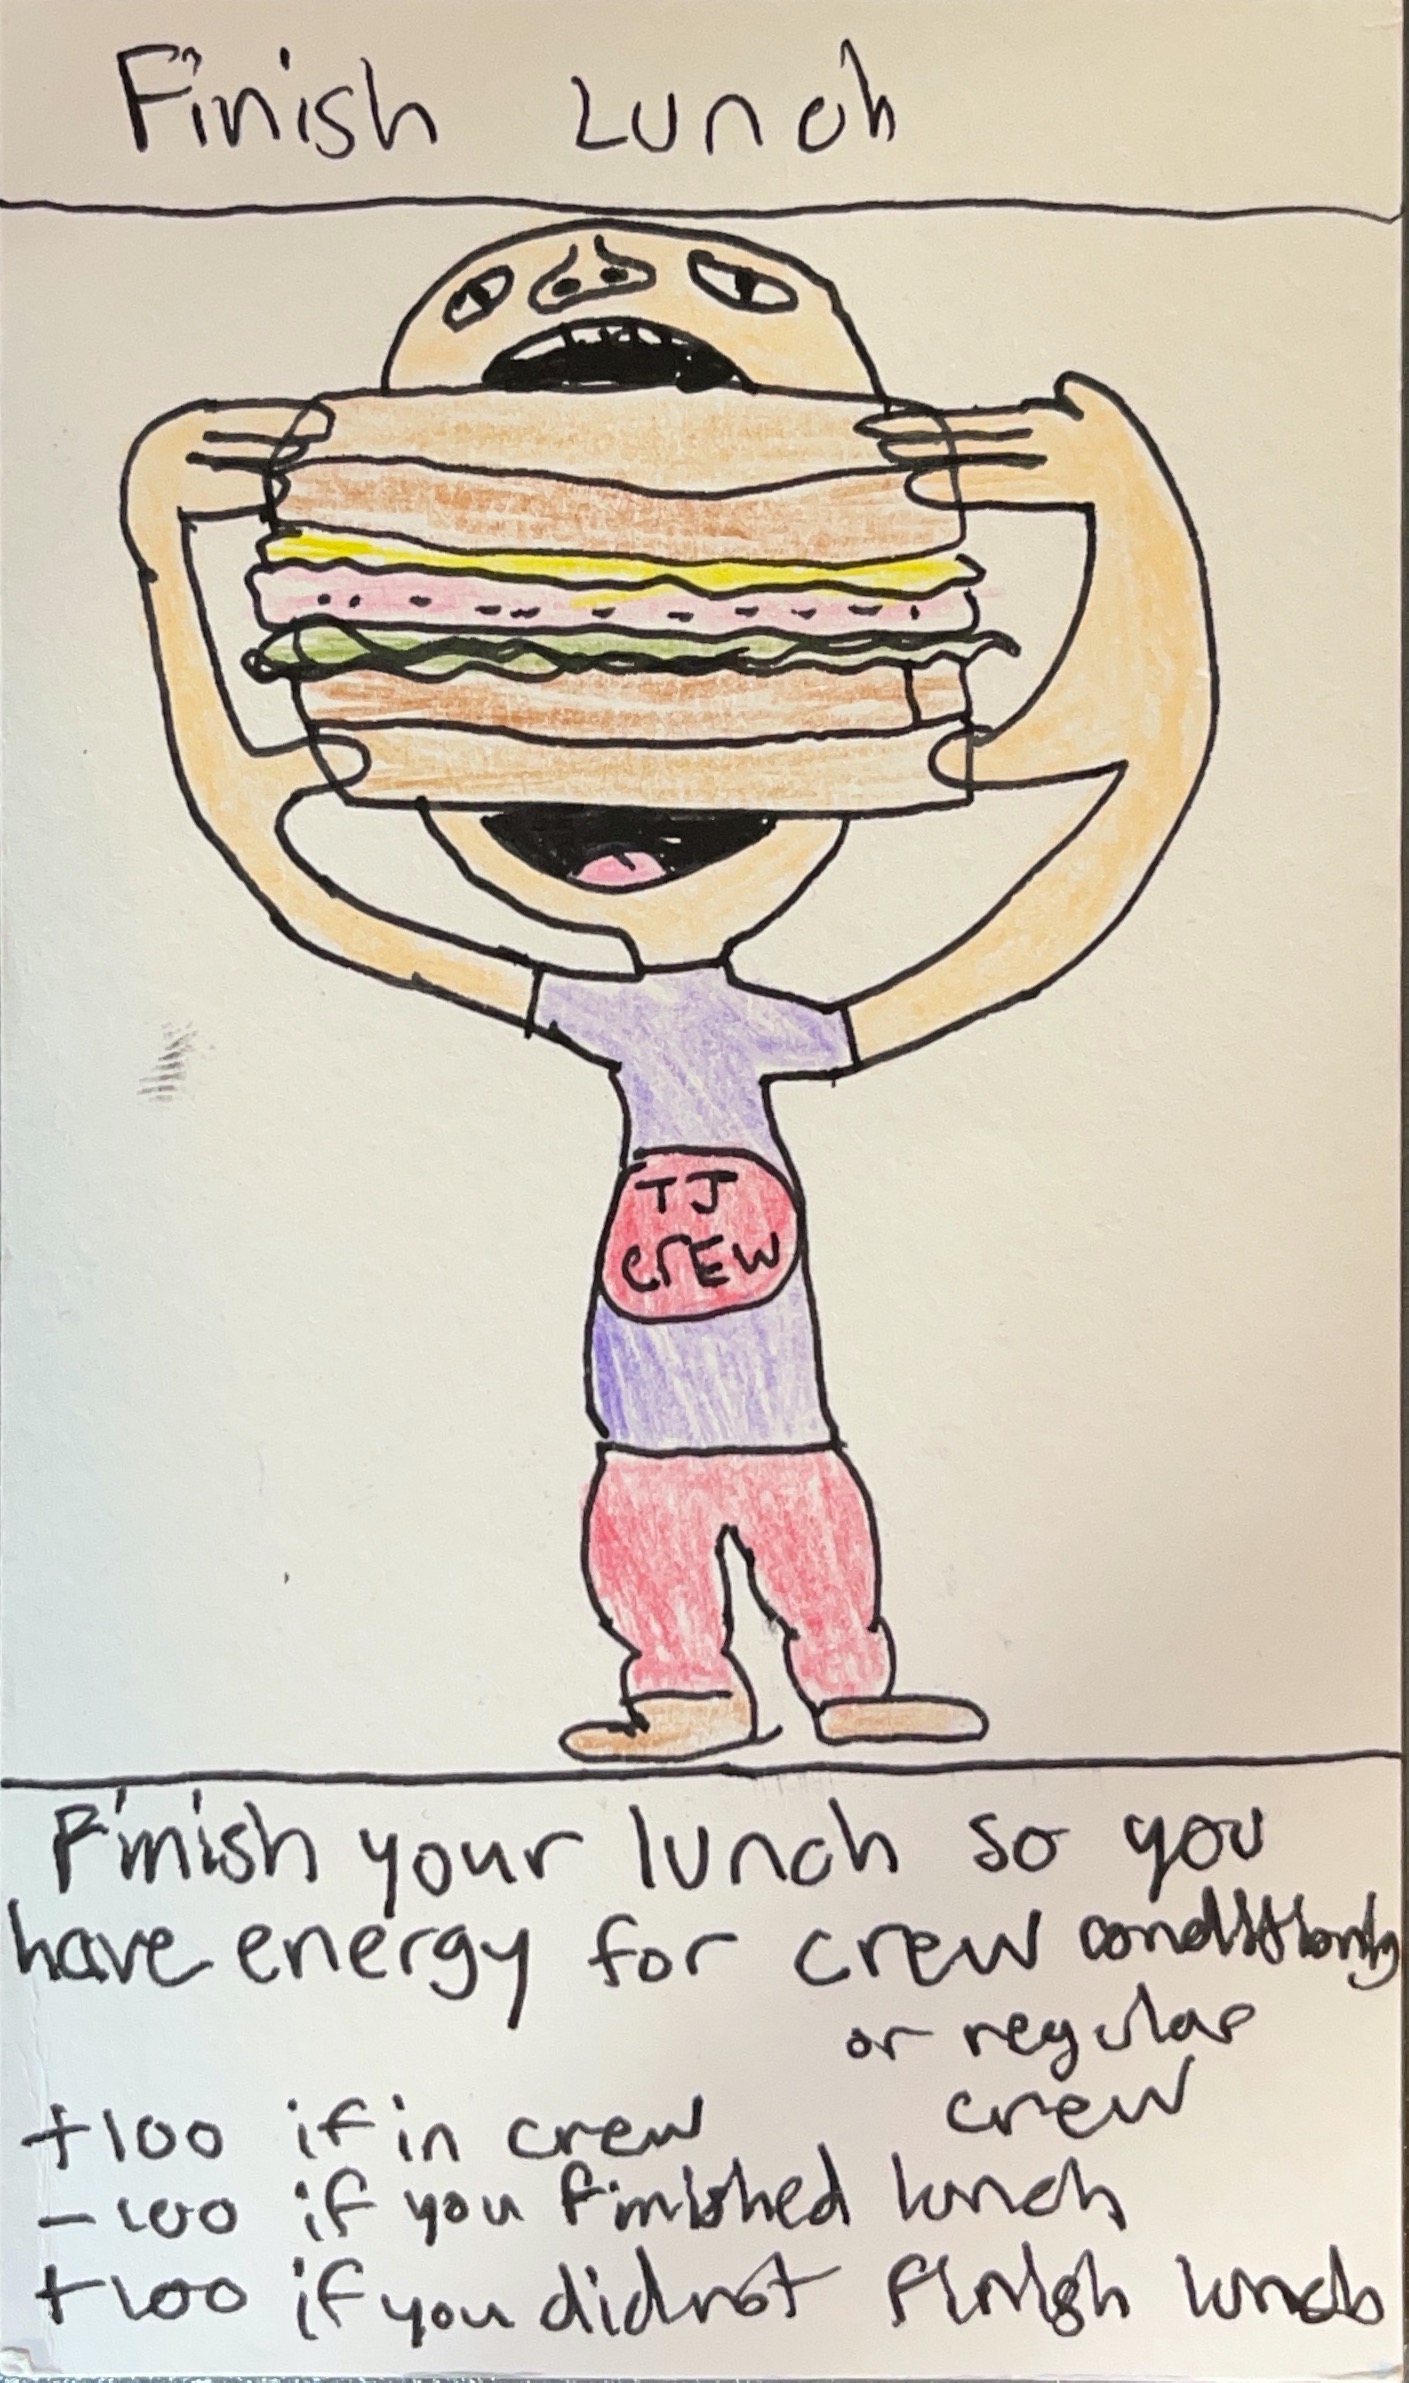 Finish Lunch
TJ
CrEW
Finish your lunch so you
have energy for crew conditioning
or regular
crew
+100 if in crew
-100 if you finished lunch
+100 if you did not finish lunch